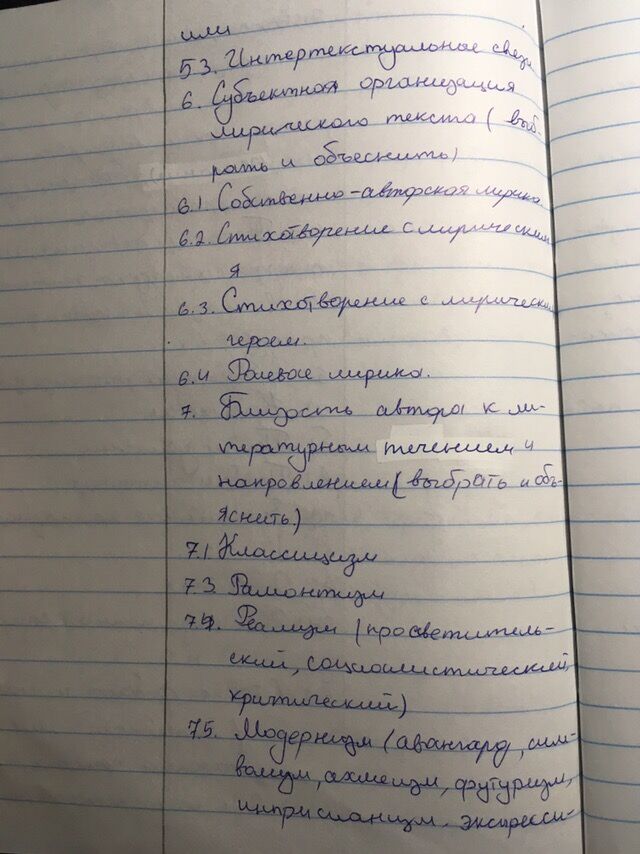 или
5.3. Интертекстуальное связи
6. Субъектноя организация
лирического текста ( выб-
рать и объеснить)
6.1 Собственно-авторская лирика
6.2. Стихотворение с лирическим
я
6.3. Стихотворение с лирическим
героем.
6.4 Ролевое лирика.
7. Близость автора к ли-
тературным течением и
напровлением (выбрать и объ-
яснить)
7.1 Классицизм
7.3. Рамонтизм
7.4. Реализм (просветитель-
ский, социолистический,
критический)
7.5. Модернизм (авангард, сим-
волизм, акмеизм, футуризм,
имприсианизм, экспресси-